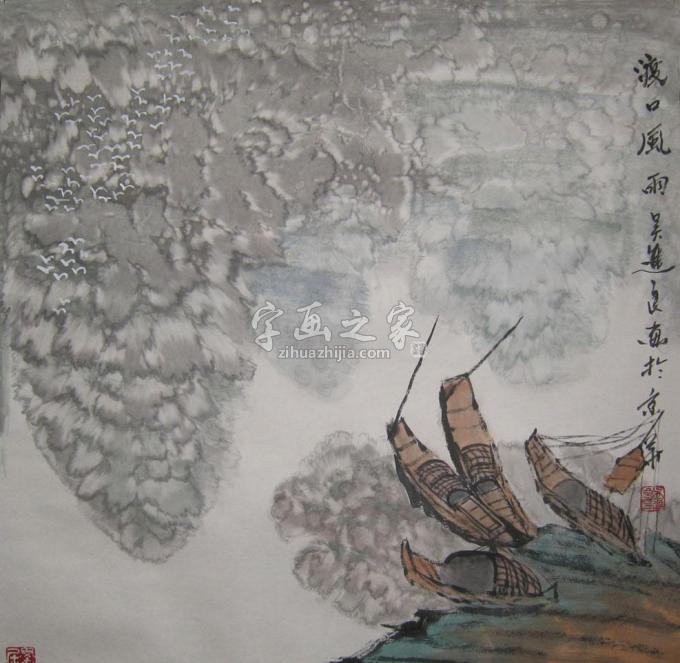 渡口風雨 吴進良画於京華
字画之家
zihuazhijia.com